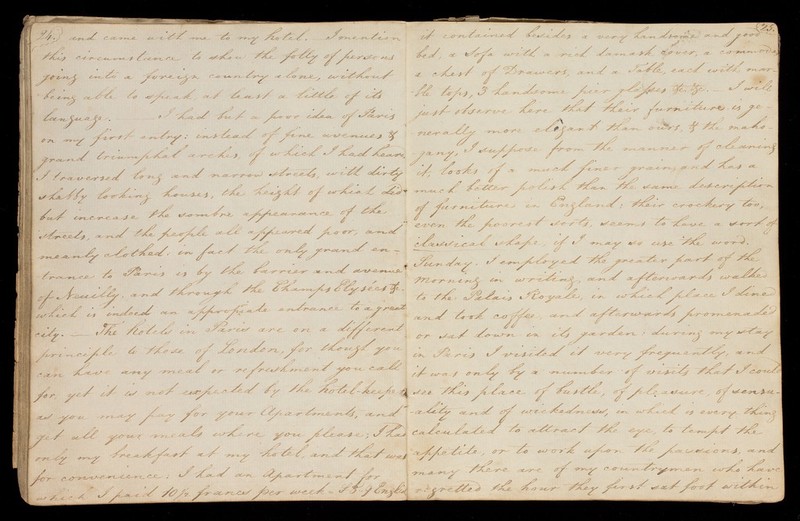 24.) and came with me to my hotel. I mention
this circumstance to shew the folly of persons
going into a foreign country alone, without
being able to speak at least a little of its
language. I had but a poor idea of Paris
on my first entry: instead of fine avenues &
grand triumphal arches, of which I had heard
I traversed long and narrow streets, with dirty
shabby looking houses, the height of which did
but increase the sombre appearance of the
streets, and the people all appeared poor, and
meanly clothed: in fact the only grand en-
trance to Paris is by the barrier and avenue
of Neuilly, and through the Champs Elysées &c.
which is indeed an appropriate entrance to a great
city. — The hotels in Paris are on a different
principle to those of London, for though you
can have any meal or refreshment you call
for yet it is not expected by the hotel-keeper
as you may pay for your Apartments, and
yet all your meals where you please; I had
only my breakfast at my hotel, and that was
for convenience: I had an Apartment for
which I paid 10/ francs per week
(25.
it contained besides a very handsome and good
bed, a sofa with a rich damask cover, a commode
a chest of Drawers, and a Table, each with mar-
ble tops, 3 handsome pier glasses &c. &c. — I will
just observe here that their furniture is ge-
nerally more elegant than ours, & the maho-
gany, I suppose from the manner of cleaning
it, looks of a much finer grain, and has a
much better polish than the same description
of furniture in England; their crockery too,
even the poorest sorts, seems to have a sort of
classical shape, if I may so use the word.
Sunday. I employed the greater part of the
morning in writing, and afterwards walked
to the Palais Royale, in which place I dined
and took coffee, and afterwards promenaded
or sat down in its garden: during my stay
in Paris I visited it very frequently, and
it was only by a number of visits that I could
see this place of bustle, of pleasure, of sensu-
ality and of wickedness, in which is every thing
calculated to attract the eye, to tempt the
appetite, or to work upon the passions, and
many there are of my countrymen who have
regretted the hour they first set foot within